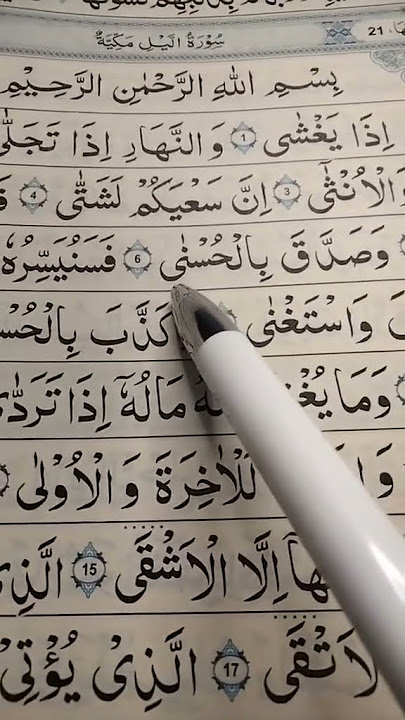 سُوْرَةُ الَّيْلِ مَكِّيَّةٌ 21
بِسْمِ اللهِ الرَّحْمٰنِ الرَّحِيْمِ
اِذَا يَغْشٰى 1 وَالنَّهَارِ اِذَا تَجَلّٰى
وَالْاُنْثٰٓى 3 اِنَّ سَعْيَكُمْ لَشَتّٰى 4
وَصَدَّقَ بِالْحُسْنٰى 6 فَسَنُيَسِّرُهٗ
وَاسْتَغْنٰى كَذَّبَ بِالْحُسْ
وَمَا يُغْنِ مَالُهٗٓ اِذَا تَرَدّٰى
لَلْاٰخِرَةَ وَالْاُوْلٰى
هَآ اِلَّا الْاَشْقَى 15 الَّذِىْ
الَاتْقَى 17 الَّذِىْ يُؤْتِىْ